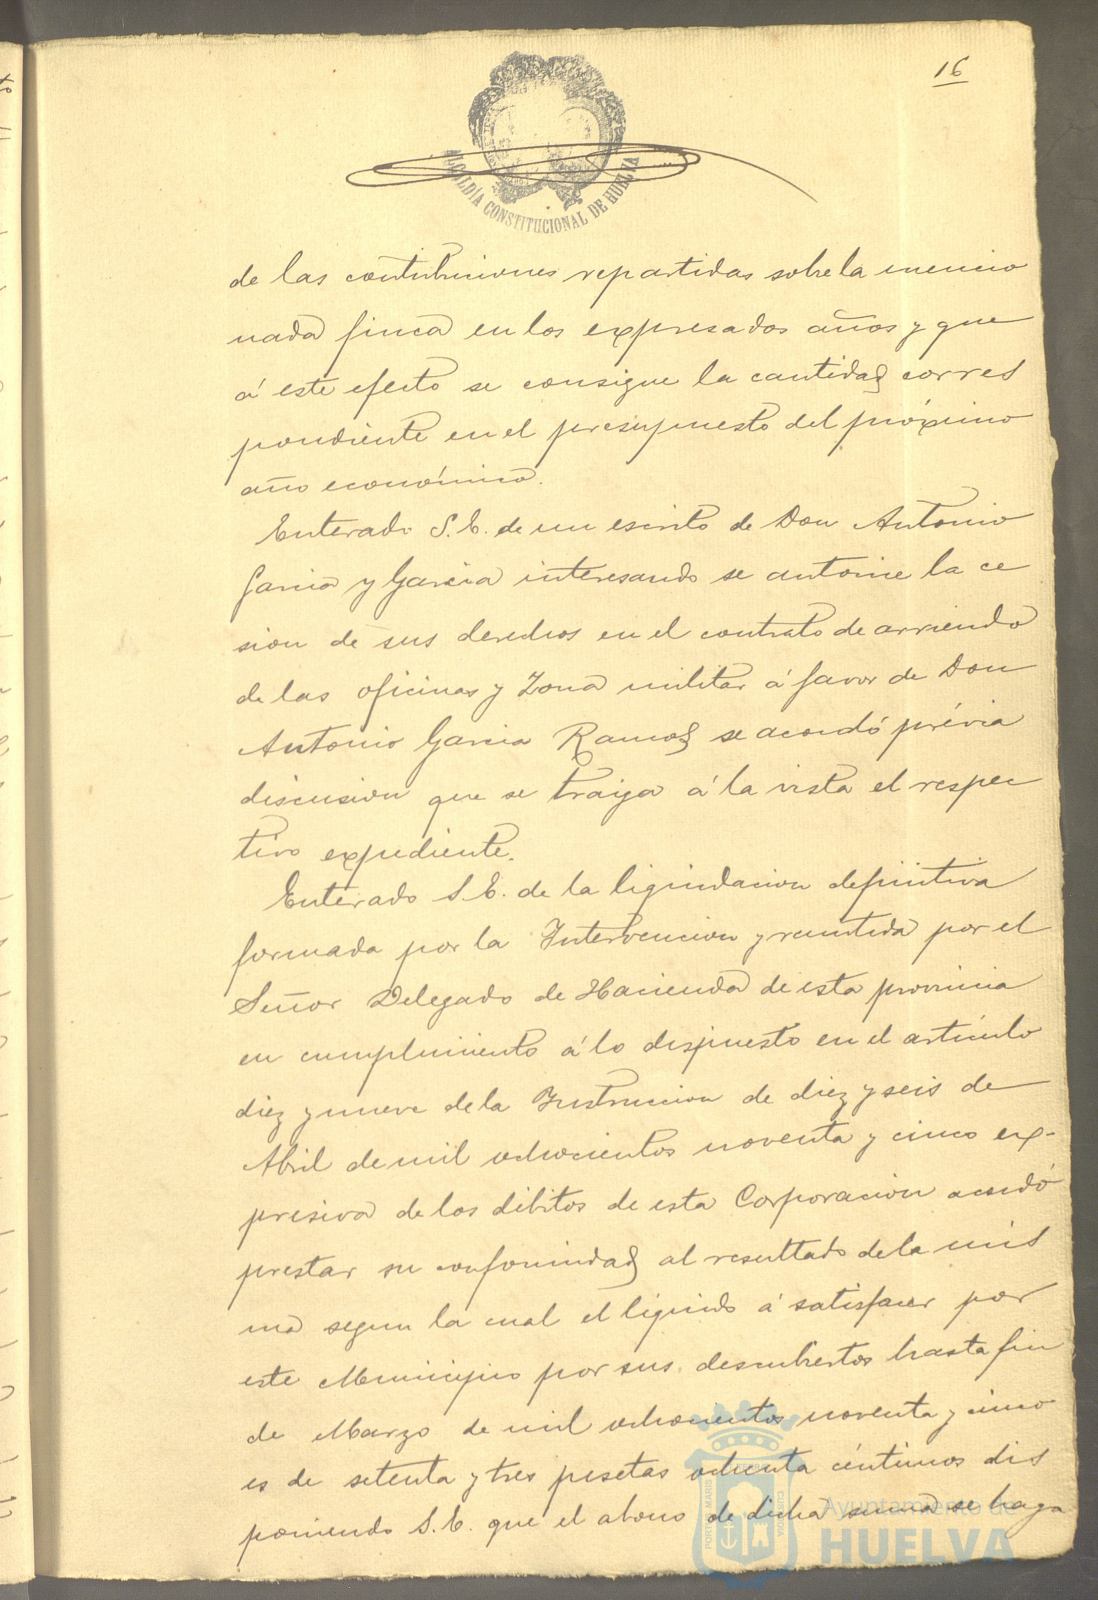 16
ALCALDÍA CONSTITUCIONAL DE HUELVA
de las contribuciones repartidas sobre la mencio
nada finca en los expresados años y que
á este efecto se consigne la cantidad corres
pondiente en el presupuesto del próximo
año económico.
Enterado S.E. de un escrito de Don Antonio
Garcia y Garcia interesando se autorice la ce
sion de sus derechos en el contrato de arriendo
de las oficinas y Zona militar á favor de Don
Antonio Garcia Ramos se acordó prévia
discusion que se traiga á la vista el respec
tivo expediente.
Enterado S.E. de la liquidacion definitiva
formada por la Intervencion y remitida por el
Señor Delegado de Hacienda de esta provincia
en cumplimiento á lo dispuesto en el artículo
diez y nueve de la Instruccion de diez y seis de
Abril de mil ochocientos noventa y cinco ex-
presiva de los débitos de esta Corporacion acordó
prestar su conformidad al resultado de la mis
ma segun la cual el líquido á satisfacer por
este Municipio por sus descubiertos hasta fin
de Marzo de mil ochocientos noventa y cinco
es de setenta y tres pesetas ochenta céntimos dis
poniendo S.E. que el abono de dicha suma se haga
Ayuntamiento de
HUELVA